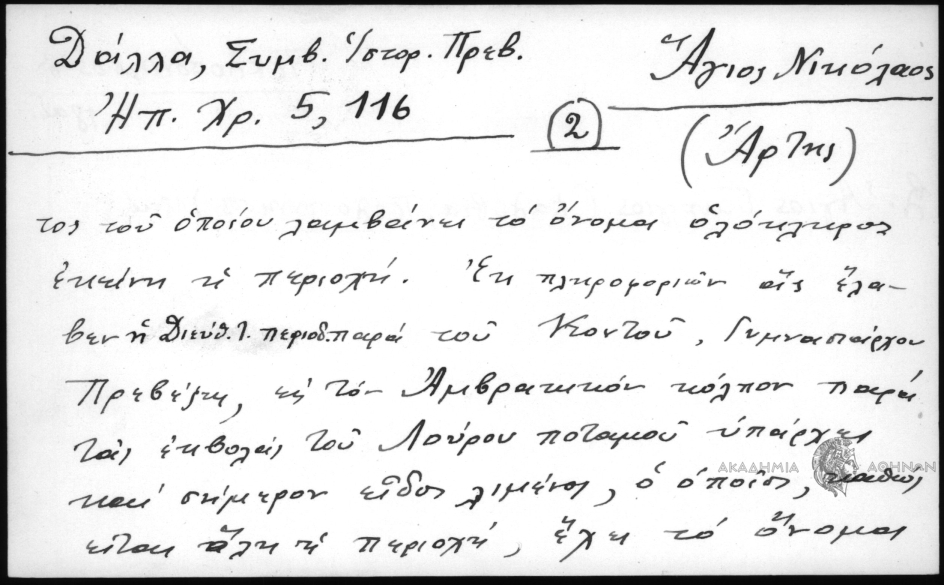 Δάλλα, Συμβ. Ἱστορ. Πρεβ.
Ἠπ. Χρ. 5, 116
(2)
Ἅγιος Νικόλαος
(Ἄρτης)
τος τοῦ ὁποίου λαμβάνει τὸ ὄνομα ὁλόκληρος
ἐκείνη ἡ περιοχή. Ἐκ πληροφοριῶν ἃς ἔλα-
βεν ἡ Διεύθ. τ. περιοδ. παρὰ τοῦ Κοντοῦ, Γυμνασιάρχου
Πρεβέζης, εἰς τὸν Ἀμβρακικὸν κόλπον παρὰ
τὰς ἐκβολὰς τοῦ Λούρου ποταμοῦ ὑπάρχει
καὶ σήμερον εἶδος λιμένος, ὁ ὁποῖος, καθὼς
εἶται ὅλη ἡ περιοχή, ἔχει τὸ ὄνομα
ΑΚΑΔΗΜΙΑ ΑΘΗΝΩΝ